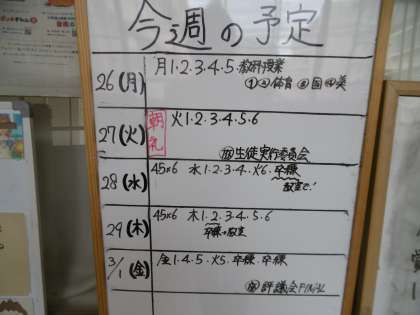 今週の予定
26(月) 月1・2・3・4・5・教研授業
①・②体育 ③国④英
27(火) 朝礼 火1・2・3・4・5・6
生徒実行委員会
28(水) 45×6 水1・2・3・4・火6・卒練
29(木) 45×6 木1・2・3・4・5・6
3/1(金) 金1・4・5・火5・卒練・卒練
評議会FINAL